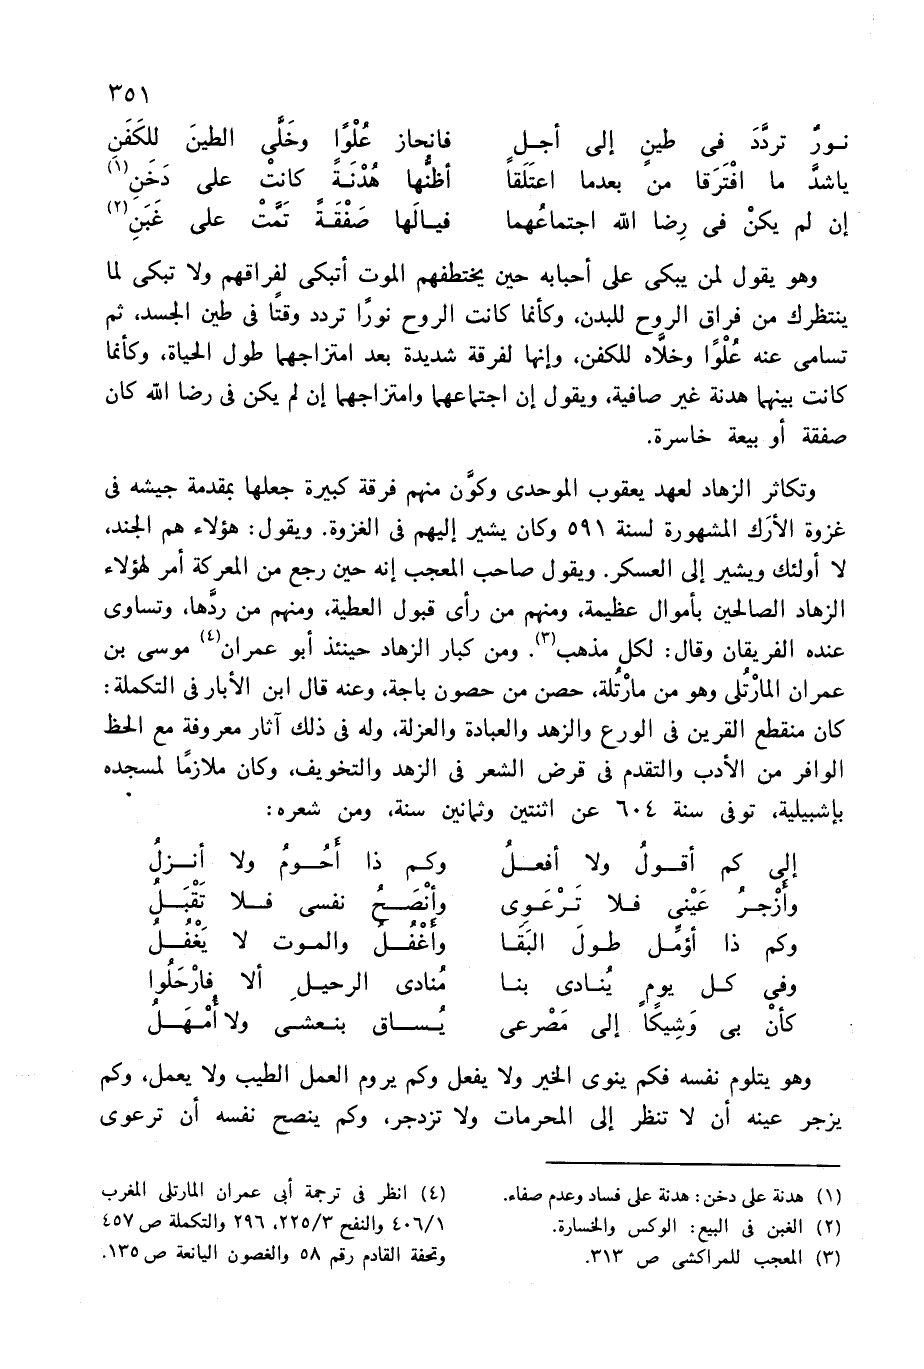 ٣٥١
نورٌ تردَّدَ فى طينٍ إلى أجلٍ فانحاز عُلْوًا وخَلَّى الطينَ للكَفَنِ
ياشدَّ ما افْتَرَقا من بعدما اعتَلَقا أظنُّها هُدْنَةً كانتْ على دَخَنِ(١)
إن لم يكنْ فى رِضا الله اجتماعُهما فيالَها صَفْقَةً تَمَّتْ على غَبَنِ(٢)
وهو يقول لمن يبكى على أحبابه حين يختطفهم الموت أتبكى لفراقهم ولا تبكى لما
ينتظرك من فراق الروح للبدن، وكأنما كانت الروح نورًا تردد وقتًا فى طين الجسد، ثم
تسامى عنه عُلْوًا وخلَّاه للكفن، وإنها لفرقة شديدة بعد امتزاجهما طول الحياة، وكأنما
كانت بينهما هدنة غير صافية، ويقول إن اجتماعهما وامتزاجهما إن لم يكن فى رضا الله كان
صفقة أو بيعة خاسرة.
وتكاثر الزهاد لعهد يعقوب الموحدى وكوَّن منهم فرقة كبيرة جعلها بمقدمة جيشه فى
غزوة الأرَك المشهورة لسنة ٥٩١ وكان يشير إليهم فى الغزوة. ويقول: هؤلاء هم الجند،
لا أولئك ويشير إلى العسكر. ويقول صاحب المعجب إنه حين رجع من المعركة أمر لهؤلاء
الزهاد الصالحين بأموال عظيمة، ومنهم من رأى قبول العطية، ومنهم من ردَّها، وتساوى
عنده الفريقان وقال: لكلٍ مذهب(٣). ومن كبار الزهاد حينئذ أبو عمران(٤) موسى بن
عمران المارْتُلى وهو من مارْتُلة، حصن من حصون باجة، وعنه قال ابن الأبار فى التكملة:
كان منقطع القرين فى الورع والزهد والعبادة والعزلة، وله فى ذلك آثار معروفة مع الحظ
الوافر من الأدب والتقدم فى قرض الشعر فى الزهد والتخويف، وكان ملازمًا لمسجده
بإشبيلية، توفى سنة ٦٠٤ عن اثنتين وثمانين سنة، ومن شعره:
إلى كم أقولُ ولا أفعلُ وكم ذا أَحُومُ ولا أنزلُ
وأَزْجرُ عَيْنى فلا تَرْعَوِى وأنْصَحُ نفسى فلا تَقْبَلُ
وكم ذا أؤمِّل طولَ البَقَا وأغْفُلُ والموت لا يَغْفُلُ
وفى كل يومٍ يُنادى بنا مُنادى الرحيلِ ألا فارْحَلُوا
كأنْ بى وَشِيكًا إلى مَصْرعى يُساق بنعشى ولا أُمْهَلُ
وهو يتلوم نفسه فكم ينوى الخير ولا يفعل وكم يروم العمل الطيب ولا يعمل، وكم
يزجر عينه أن لا تنظر إلى المحرمات ولا تزدجر، وكم ينصح نفسه أن ترعوى
(١) هدنة على دخن: هدنة على فساد وعدم صفاء.
(٢) الغبن فى البيع: الوكس والخسارة.
(٣) المعجب للمراكشى ص ٣١٣.
(٤) انظر فى ترجمة أبى عمران المارتلى المغرب
٤٠٦/١ والنفح ٢٢٥/٣، ٢٩٦ والتكملة ص ٤٥٧
وتحفة القادم رقم ٥٨ والغصون اليانعة ص ١٣٥.